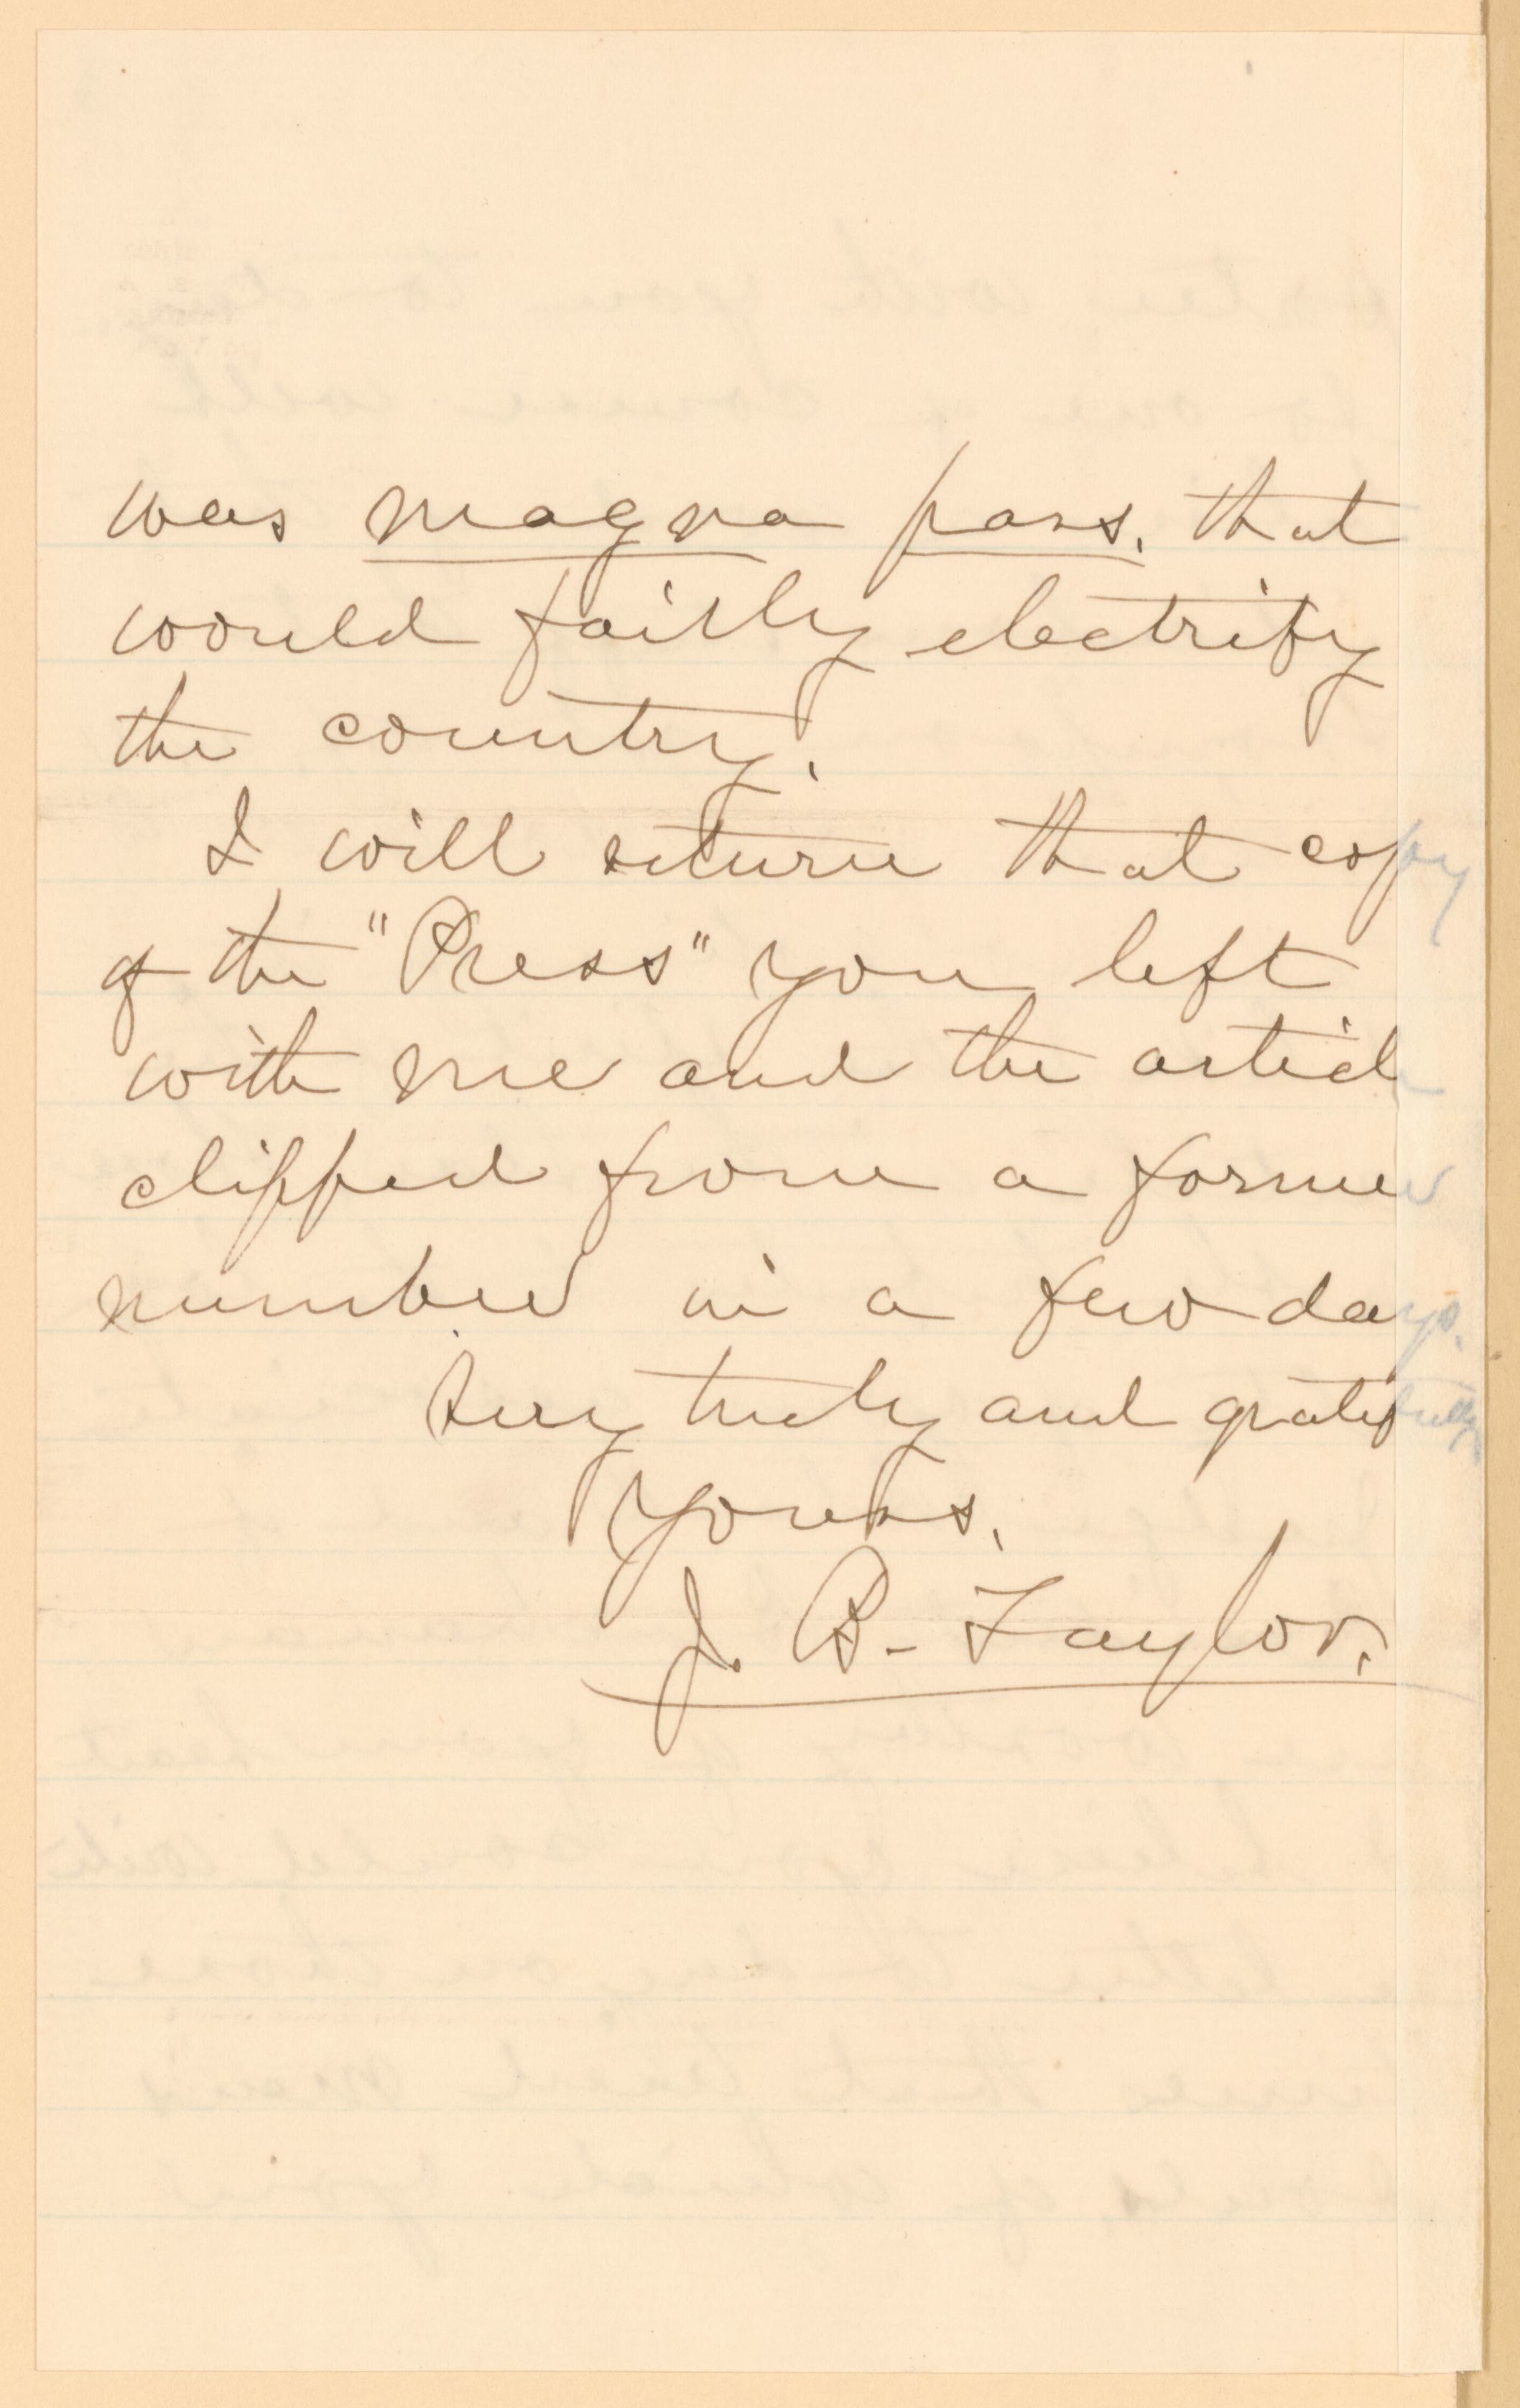 was magna pars, that
would fairly electrify
the country.
I will return that copy
of the "Press" you left
with me and the article
clipped from a former
number in a few days.
Very truly and gratefully
yours,
J. B. Taylor.